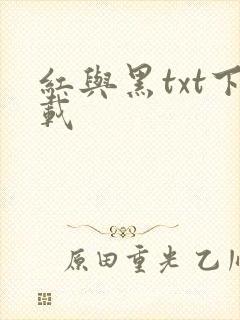 紅與黑txt下
載
原田重光 乙川